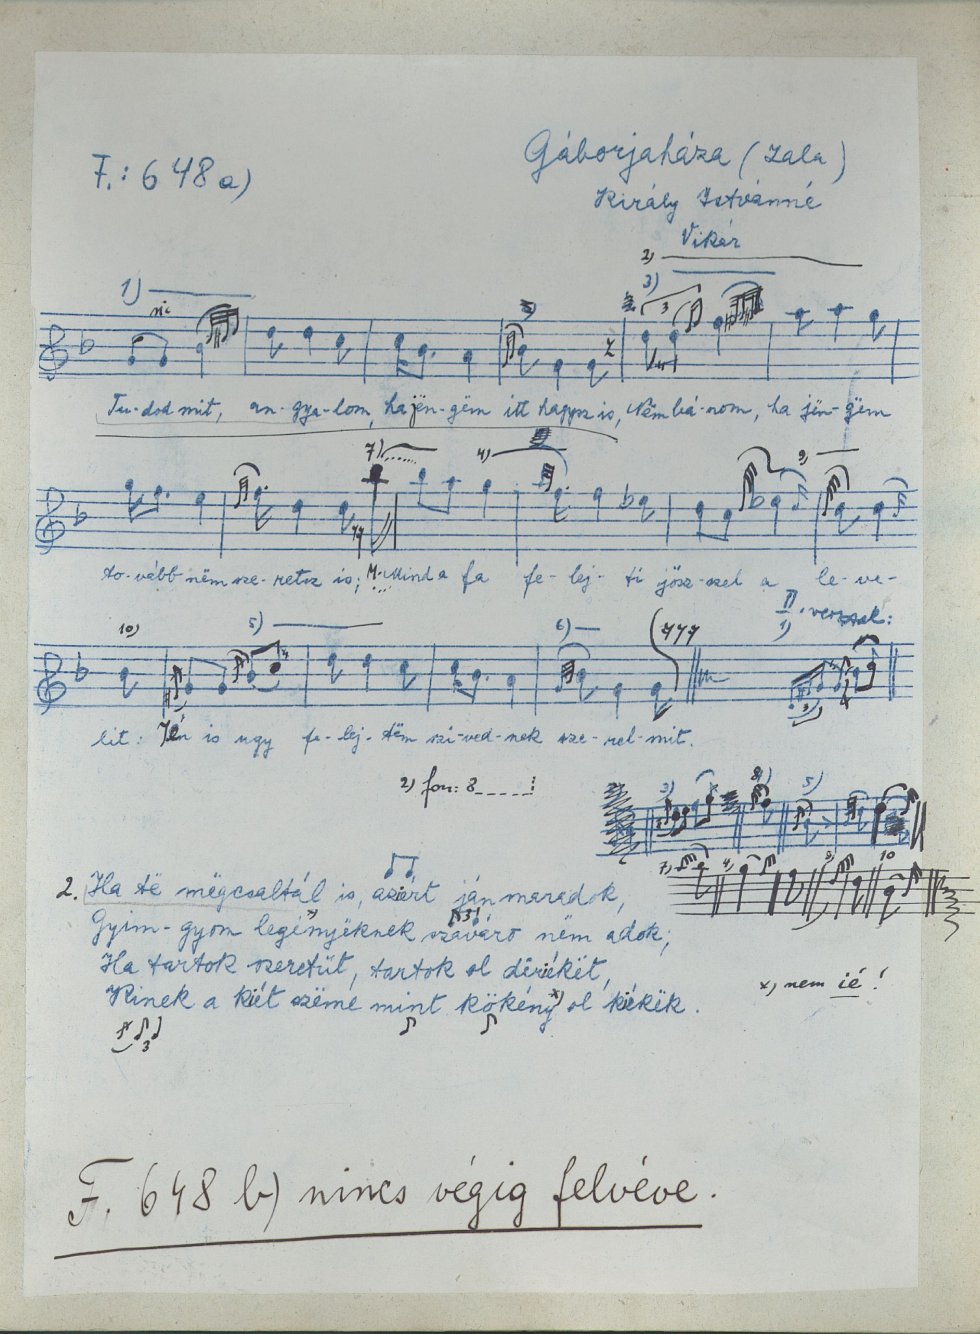 F.: 648 a)
Gáborjaháza (Zala)
Király Istvánné
Vikár
2)
1)
3)
3
Tu-dod mit, an-gya-lom, ha jën-gëm itt hagysz is, Nëm bá-nom, ha jën-gëm
7) 4) 9)
to-vább nëm sze-retsz is; Mind a fa fe-lej-ti jösz-szel a le-ve-
II. versszak:
10) 5) 6) 1)
lit: Jén is ugy fe-lej-tëm szi-ved-nek sze-rel-mit.
2) fon: 8_ _ _ _ _
3) 8) 5)
7) 4) 9) 10
2. Ha të mëgcsaltál is, azért ján maradok,
Gyim-gyom legényëknek szaváro nëm adok;
Ha tartok szeretüt, tartok ol
Kinek a két szëme mint kökény ol kékëk.
x) nem ié!
3
F. 648 b) nincs végig felvéve.